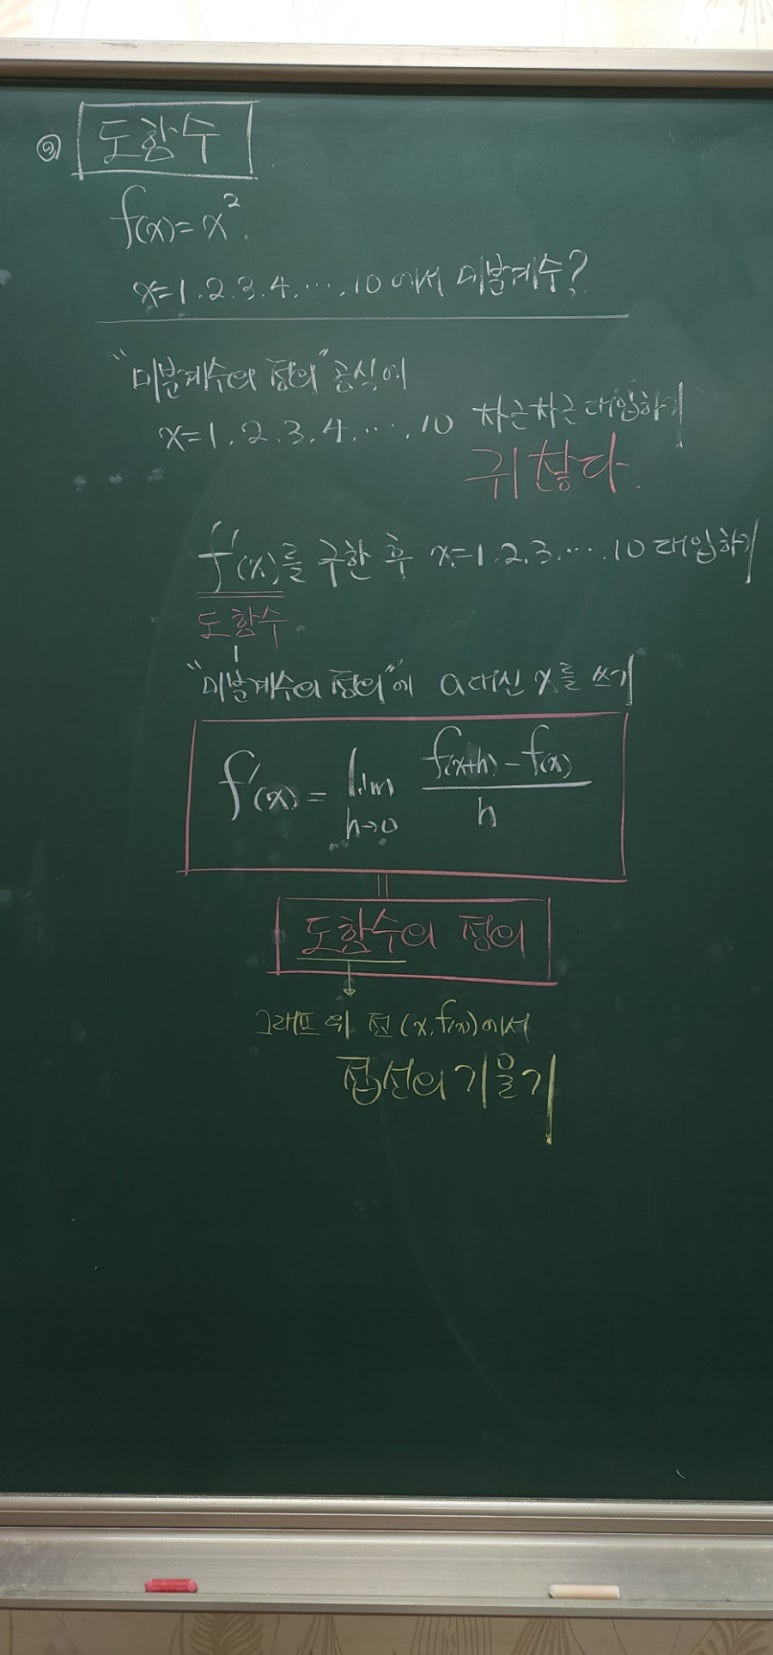 ② 도함수
f(x)=x².
x=1.2.3.4.…,10 에서 미분계수?
"미분계수의 정의" 공식에
x=1.2.3.4.…,10 차근차근 대입하기
귀찮다.
f'(x)를 구한 후 x=1.2.3.…,10 대입하기
도함수
"미분계수의 정의"에 a대신 x를 쓰기
f'(x) = lim h→0 f(x+h) - f(x) / h
도함수의 정의
그래프 위 점 (x, f(x))에서
접선의 기울기